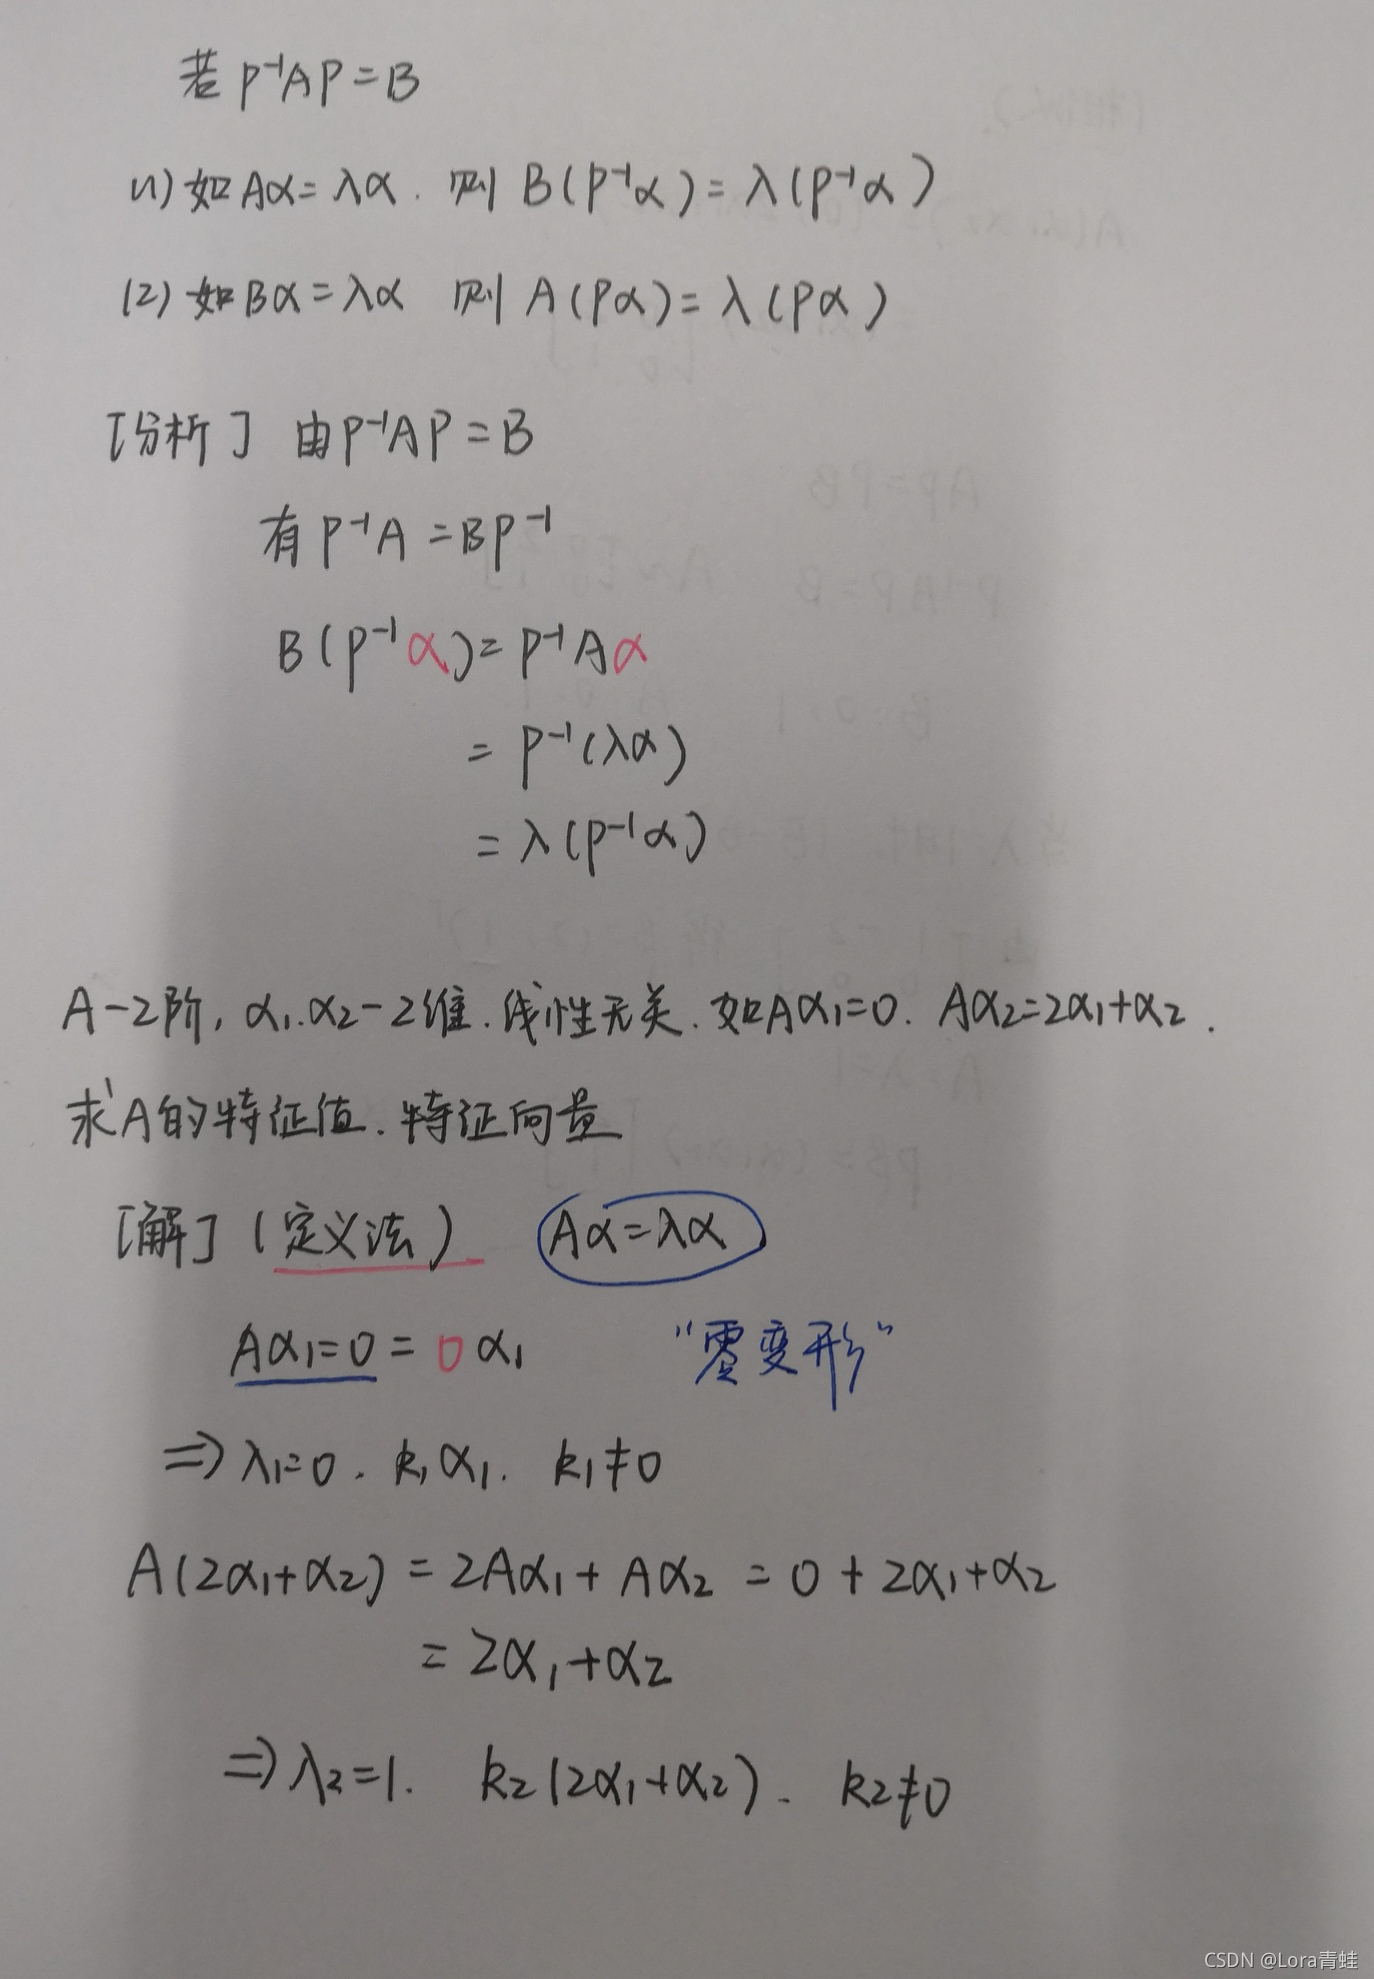 若 P⁻¹AP=B
(1) 如Aα=λα. 则 B(P⁻¹α)=λ(P⁻¹α)
(2) 如Bα=λα 则 A(Pα)=λ(Pα)
[分析] 由P⁻¹AP=B
有 P⁻¹A=BP⁻¹
B(P⁻¹α)=P⁻¹Aα
=P⁻¹(λα)
=λ(P⁻¹α)
A-2阶, α₁.α₂-2维.线性无关. 如Aα₁=0. Aα₂=2α₁+α₂.
求A的特征值.特征向量
[解] (定义法) Aα=λα
Aα₁=0=0α₁ "零变形"
⇒λ₁=0. k₁α₁. k₁≠0
A(2α₁+α₂)=2Aα₁+Aα₂=0+2α₁+α₂
=2α₁+α₂
⇒λ₂=1. k₂(2α₁+α₂). k₂≠0
CSDN @Lora青蛙